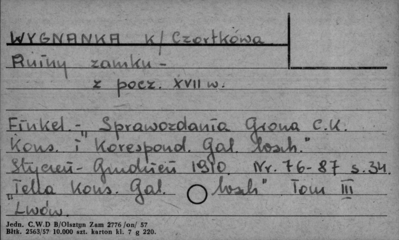 WYGNANKA k/Czortkówa
Ruiny zamku –
z pocz. XVII w.
Finkel. – „Sprawozdania Grona C.K.
Kons. i Korespond. Gal. wsch."
Styczeń – Grudzień 1910. Nr. 76-87 s. 34.
„Teka Kons. Gal. wsch" Tom III
Lwów.
Jedn. C.W.D B/Olsztyn Zam 2776/on/ 57
Bltk. 2563/57 10.000 szt. karton kl. 7 g 220.